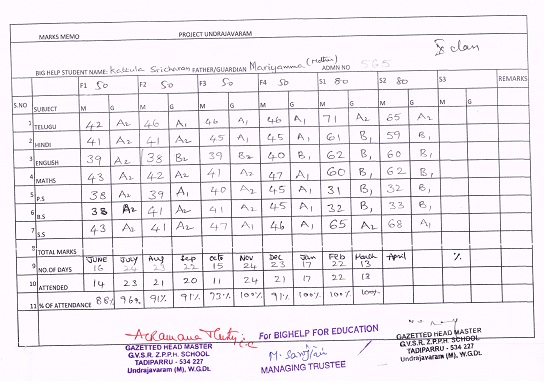 MARKS MEMO PROJECT UNDRAJAVARAM
IX class
BIG HELP STUDENT NAME: Katula Sricharan FATHER/GUARDIAN Mariyamma (Mother) ADMN NO 565
F1 50 F2 50 F3 50 F4 50 S1 80 S2 80 S3 REMARKS
S.NO SUBJECT M G M G M G M G M G M G M G
1 TELUGU 42 A2 46 A1 46 A1 46 A1 71 A2 65 A2
2 HINDI 41 A2 41 A2 45 A1 45 A1 61 B1 59 B1
3 ENGLISH 39 A2 38 B2 39 B2 40 B1 62 B1 60 B1
4 MATHS 43 A2 42 A2 41 A2 47 A1 60 B1 62 B1
5 P.S 38 A2 39 A1 40 A2 45 A1 31 B1 32 B1
6 B.S 38 A2 41 A2 41 A2 45 A1 32 B1 33 B1
7 S.S 43 A2 41 A2 47 A1 46 A1 65 A2 68 A1
8 TOTAL MARKS JUNE July Aug Sep Octo Nov Dec Jan Feb March April %
9 NO.OF DAYS 16 24 23 22 15 24 23 17 22 13
10 ATTENDED 14 23 21 20 11 24 21 17 22 13
11 % OF ATTENDANCE 88% 96% 91% 91% 73% 100% 91% 100% 100% 100%
GAZETTED HEAD MASTER
G.V.S.R. Z.P.P.H. SCHOOL
TADIPARRU - 534 227
Undrajavaram (M), W.G.Dt.
For BIGHELP FOR EDUCATION
MANAGING TRUSTEE
GAZETTED HEAD MASTER
G.V.S.R. Z.P.P.H. SCHOOL
TADIPARRU - 534 227
Undrajavaram (M), W.G.Dt.